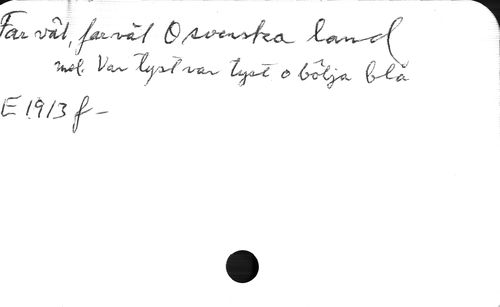 Far väl, farväl O svenska land
mel. Var tyst var tyst o bölja blå
E 1913 f –